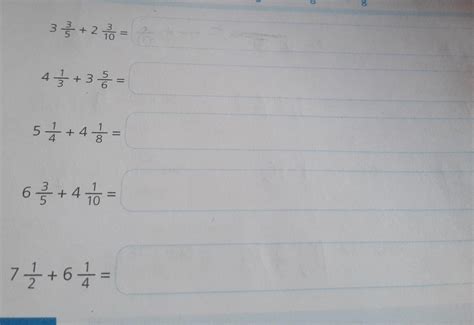 6 8
3 3/5 + 2 3/10 =
4 1/3 + 3 5/6 =
5 1/4 + 4 1/8 =
6 3/5 + 4 1/10 =
7 1/2 + 6 1/4 =